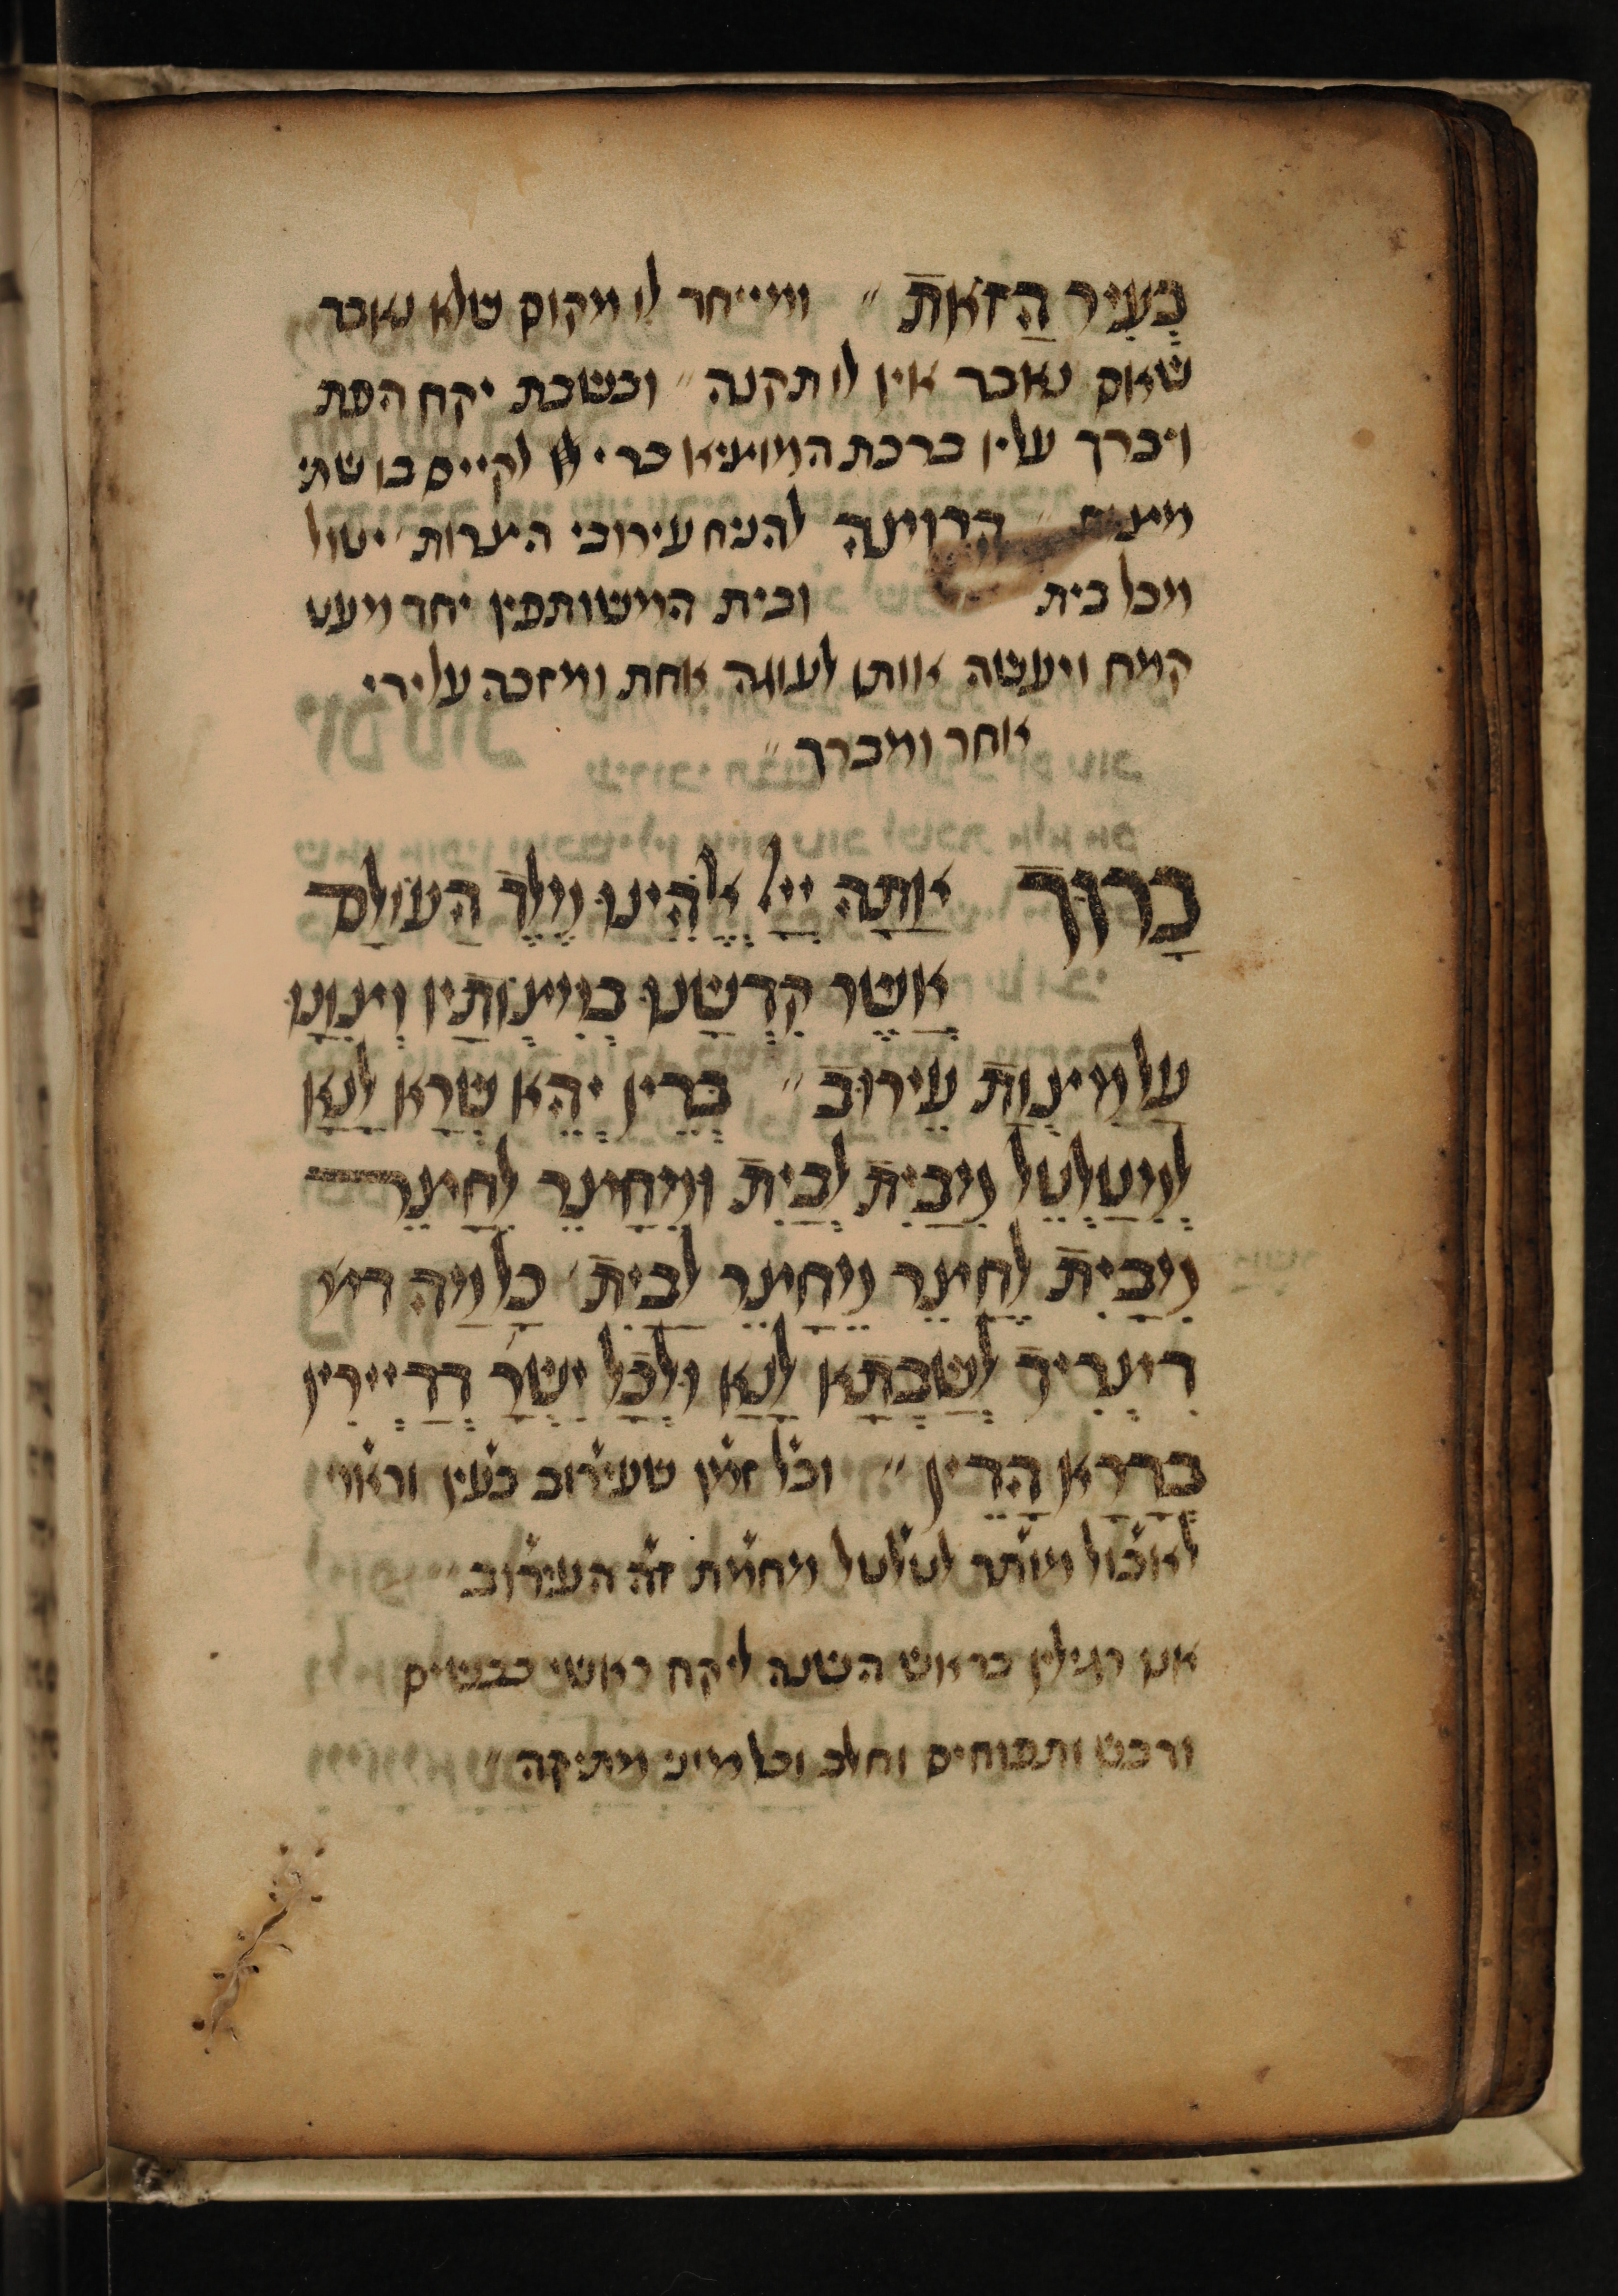 בָּעִיר הַזֹאת״ ומייחד לו מקום שלא נאבד
שאם נאבד אין לו תקנה״ ובשבת יקח הפת
ויברך עליו ברכת המוציא כדי לקיים בו שתי
מצות הרוצה להניח עירובי חצרות יטול
מכל בית ובית המשותפין יחד מעט
קמח ויעשה אותו לעוגה אחת ומזכה על ידי
אחר ומברך״
בָּרוּךְ אַתָּה יְיָ אֱלֹהֵינוּ מֶלֶךְ הָעוֹלָם
אֲשֶׁר קִדְּשָׁנוּ בְּמִצְוֹתָיו וְצִוָּנוּ
עַל מִצְוַת עֵירוּב״ בְּדֵין יְהֵא שְׁרֵא לָנָא
לְמִיטַלְטֵל מִבַּיִת לְבַיִת וּמֵחָצֵר לְחָצֵר
מִבַּיִת לְחָצֵר מֵחָצֵר לְבַיִת׳ כָּל מַה דִּי
דִיצְרִיךְ לְשַׁבְּתָא לָנָא וּלְכָל יִשְׂרָ׳ דְּדָיְירִין
בְּדָרְתָא הָדֵין״ וכל זמן שעירוב בעין וראוי
לאכול מותר לטלטל מחמת זה העירוב
אנו רגילין בראש השנה ליקח ראשי כבשים
ודבש ותפוחים וחלב וכל מיני מתיקה״